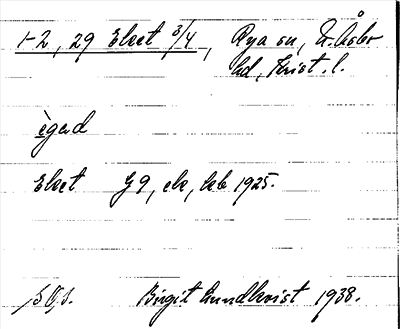 1-2, 29 Ekeet 3/4, Rya sn, N. Åsbo
hd, Krist. l.
ègəd
Ekeet G9, ek, leb 1925.
Birgit Lundkvist 1938.